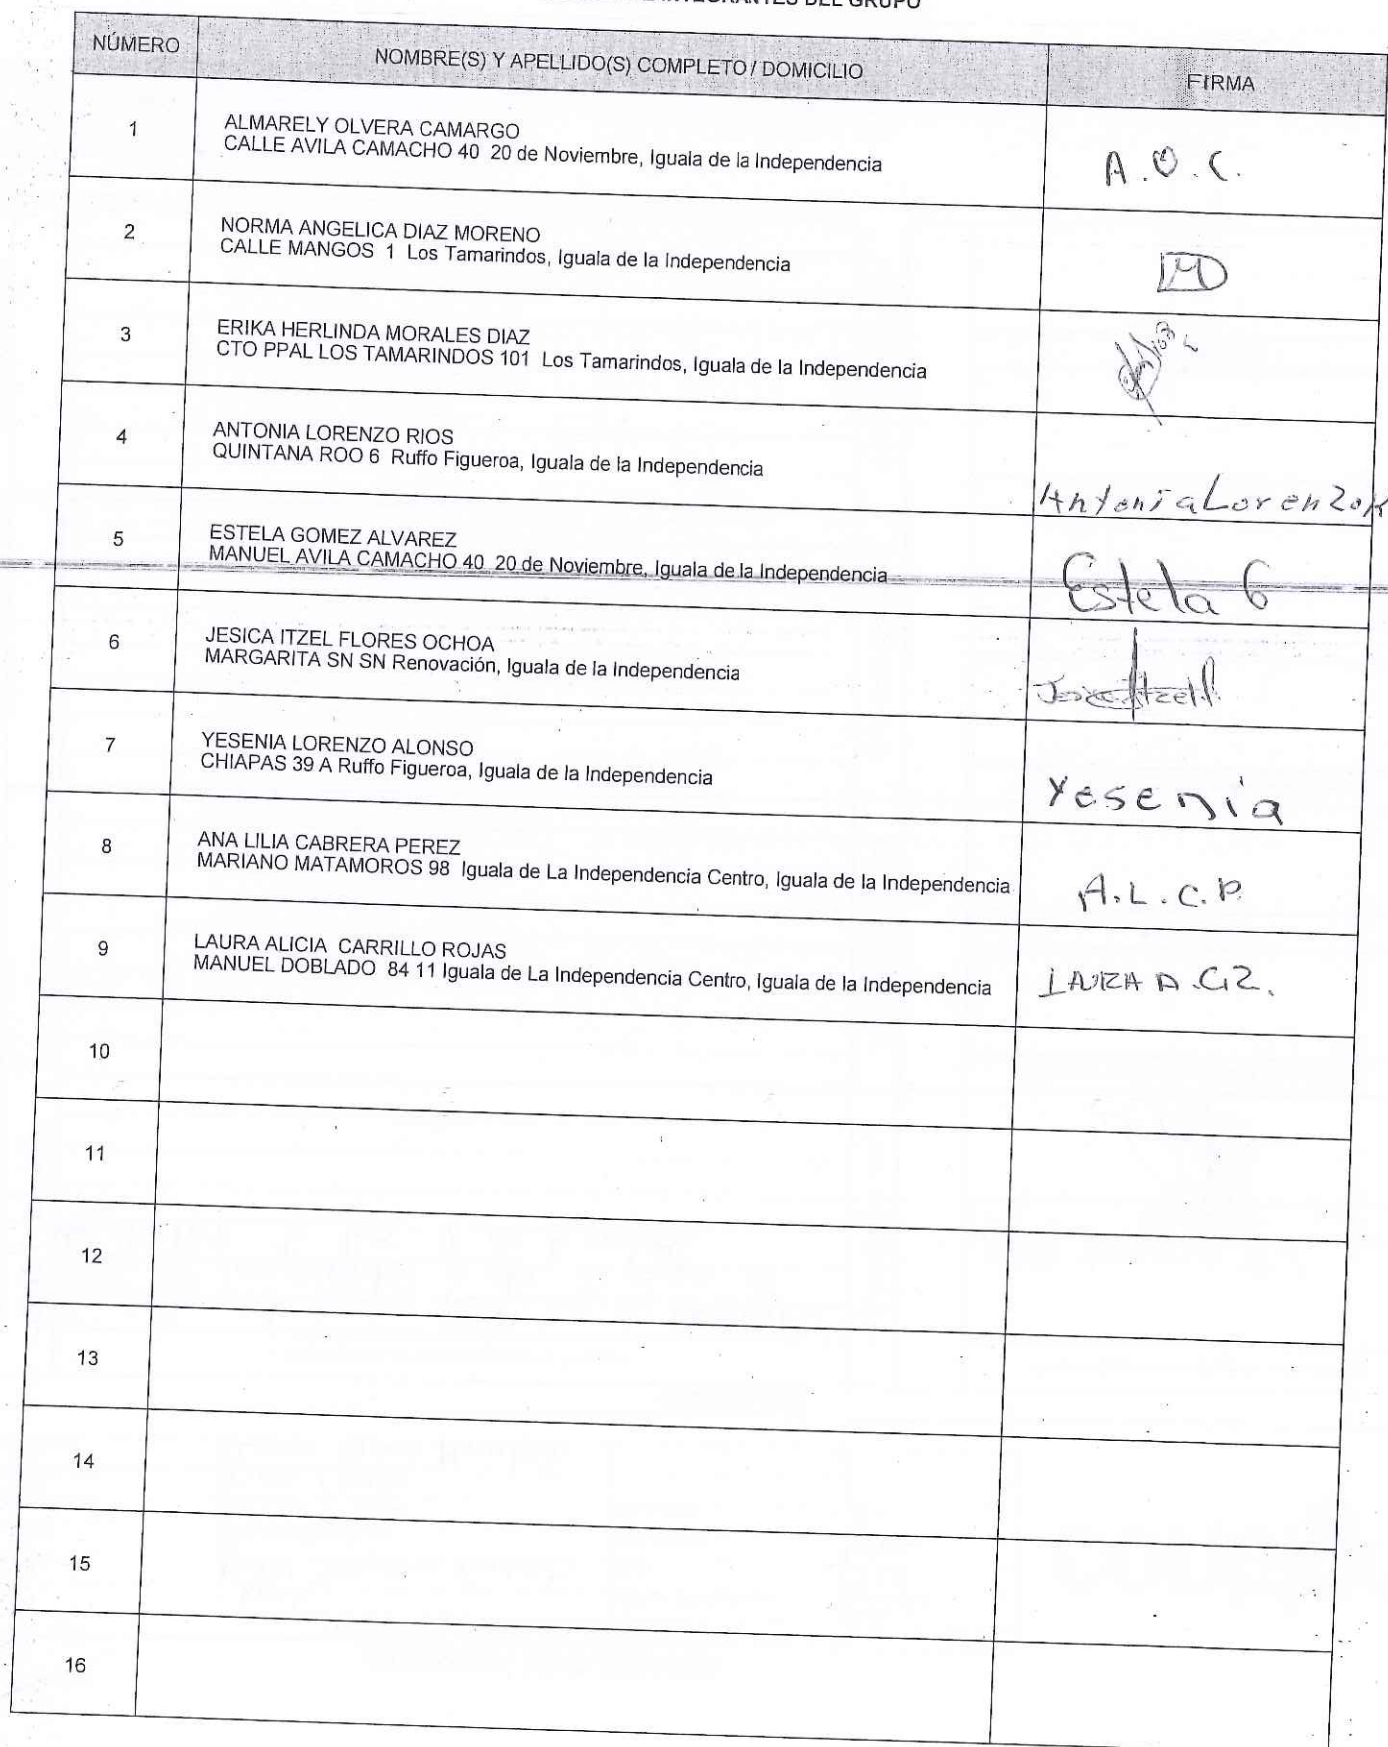 INTEGRANTES DEL GRUPO
NÚMERO NOMBRE(S) Y APELLIDO(S) COMPLETO / DOMICILIO FIRMA
1 ALMARELY OLVERA CAMARGO
CALLE AVILA CAMACHO 40 20 de Noviembre, Iguala de la Independencia
A.O.C.
2 NORMA ANGELICA DIAZ MORENO
CALLE MANGOS 1 Los Tamarindos, Iguala de la Independencia
3 ERIKA HERLINDA MORALES DIAZ
CTO PPAL LOS TAMARINDOS 101 Los Tamarindos, Iguala de la Independencia
4 ANTONIA LORENZO RIOS
QUINTANA ROO 6 Ruffo Figueroa, Iguala de la Independencia
Antonia Lorenzo R
5 ESTELA GOMEZ ALVAREZ
MANUEL AVILA CAMACHO 40 20 de Noviembre, Iguala de la Independencia
Estela G
6 JESICA ITZEL FLORES OCHOA
MARGARITA SN SN Renovación, Iguala de la Independencia
7 YESENIA LORENZO ALONSO
CHIAPAS 39 A Ruffo Figueroa, Iguala de la Independencia
Yesenia
8 ANA LILIA CABRERA PEREZ
MARIANO MATAMOROS 98 Iguala de La Independencia Centro, Iguala de la Independencia
A.L.C.P.
9 LAURA ALICIA CARRILLO ROJAS
MANUEL DOBLADO 84 11 Iguala de La Independencia Centro, Iguala de la Independencia
LAURA A.C.R.
10
11
12
13
14
15
16